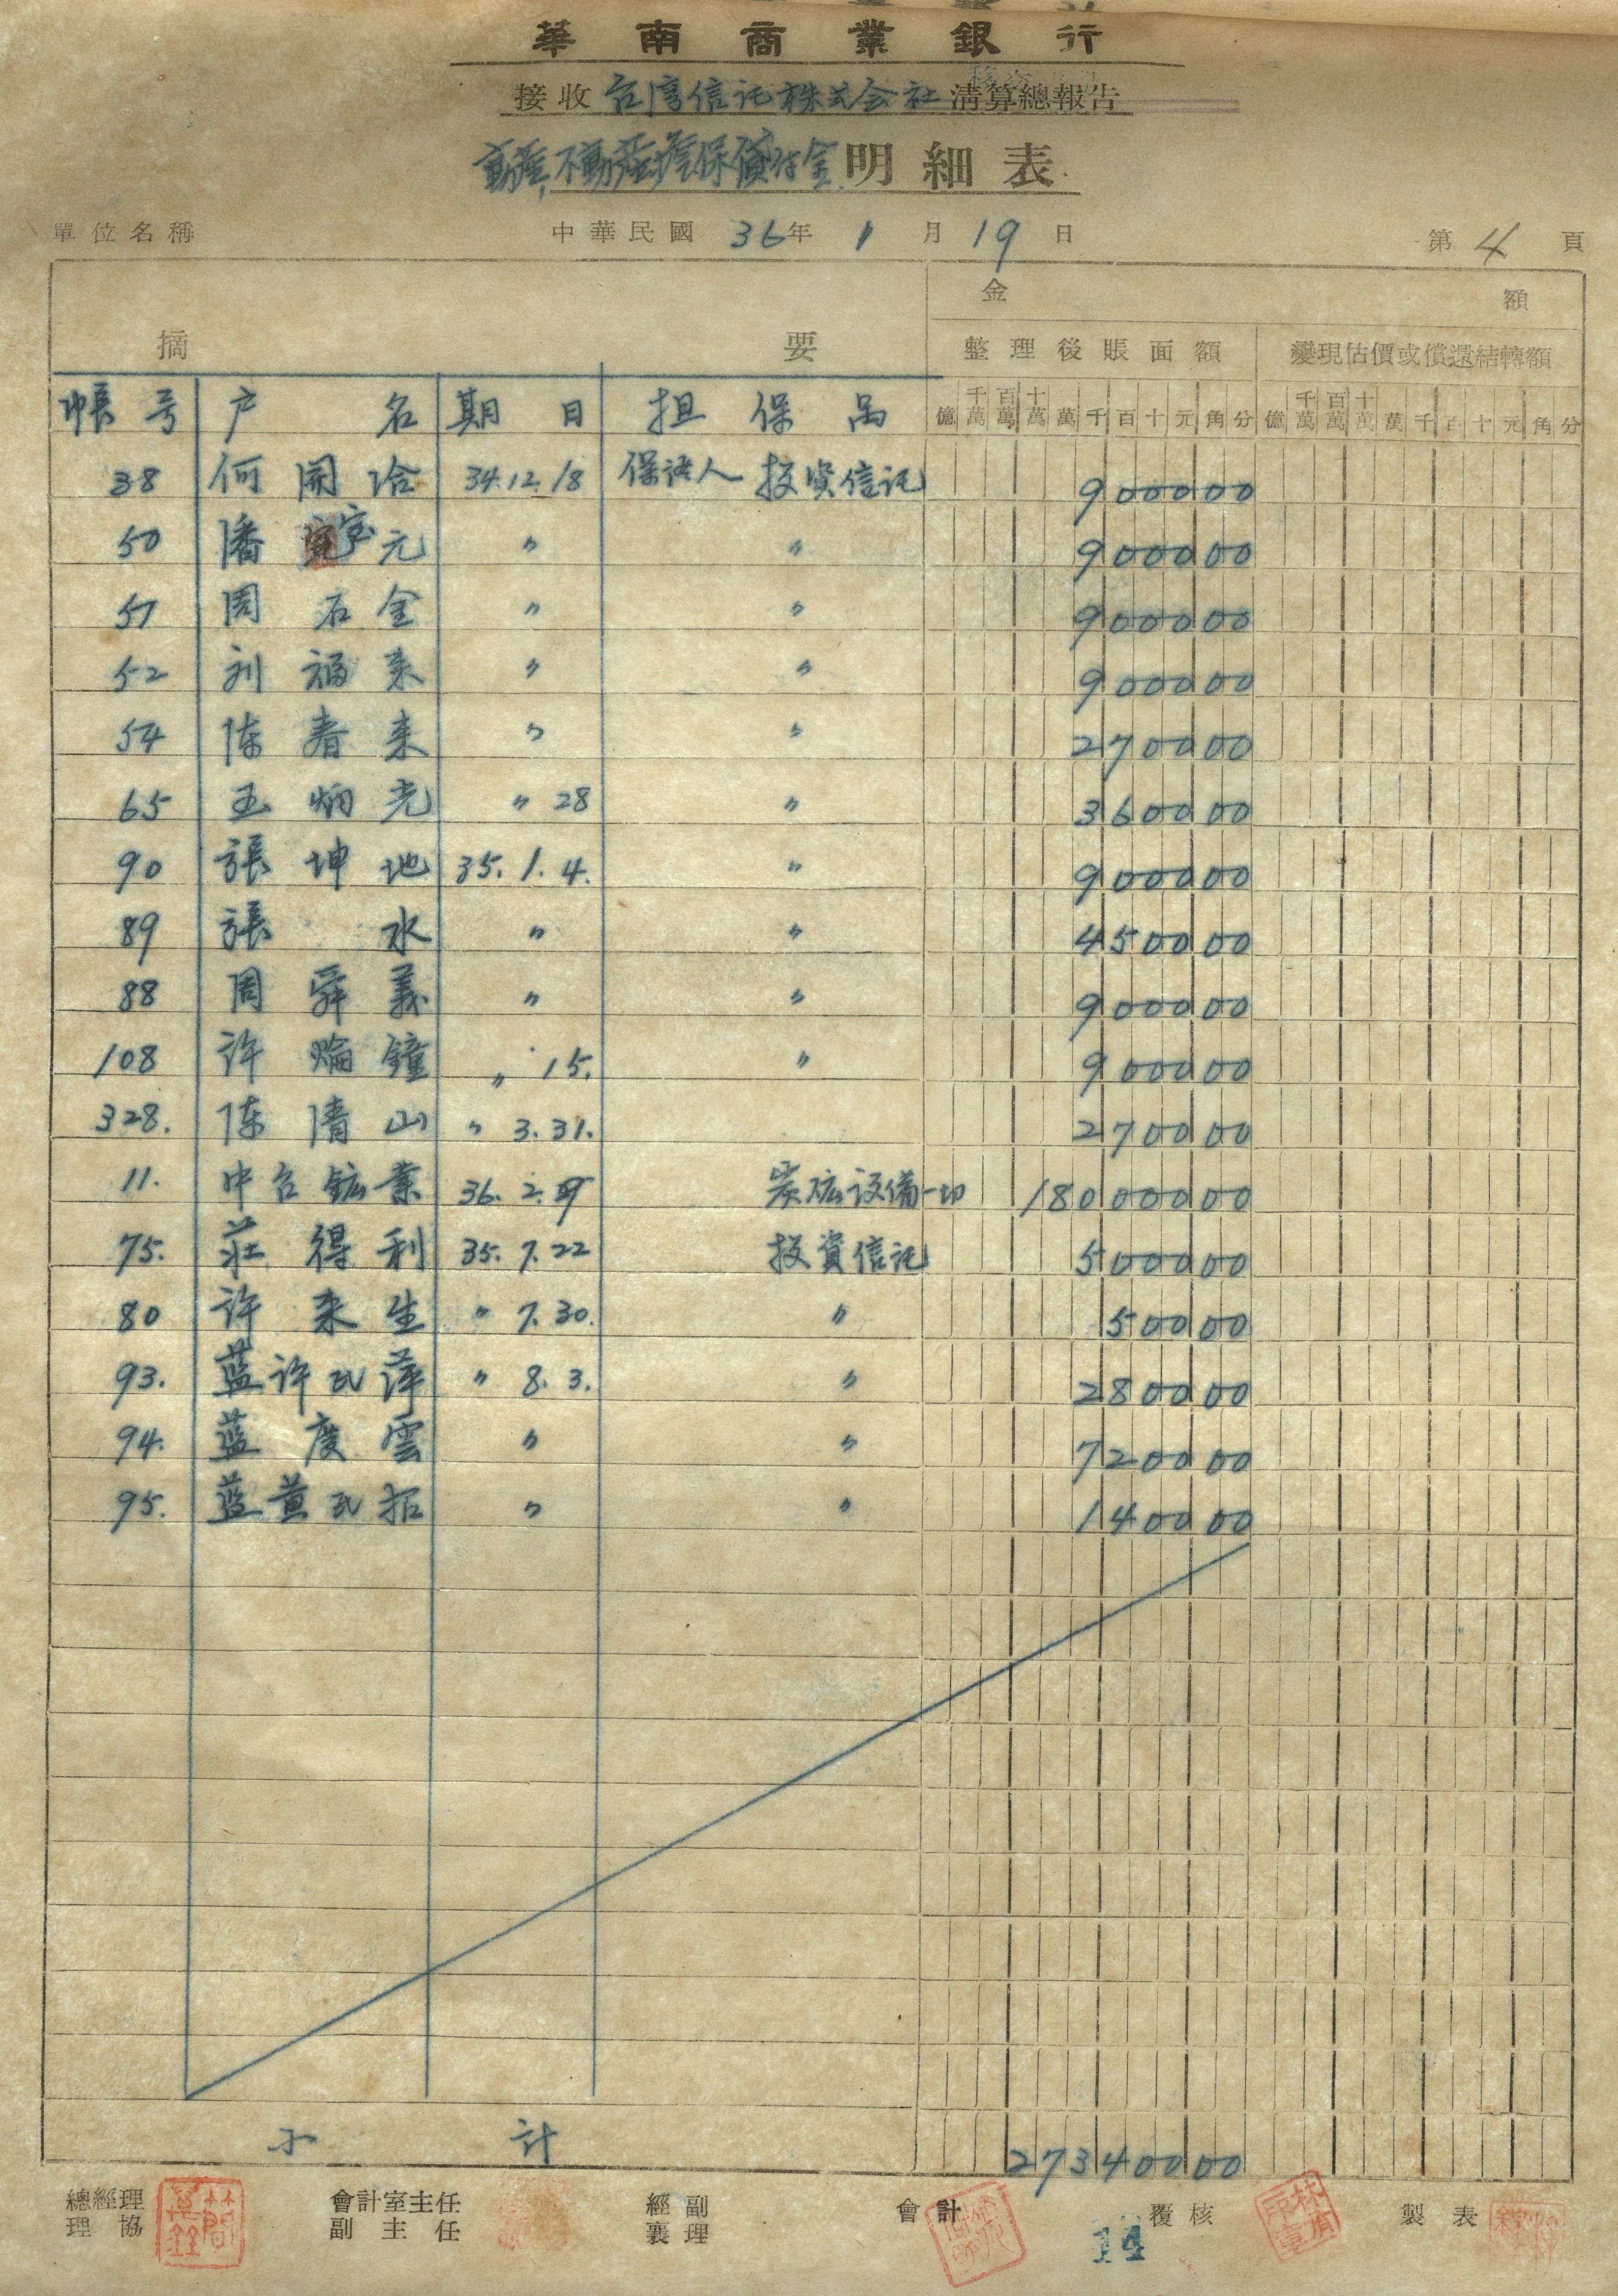 華南商業銀行
接收 台湾信託株式会社 清算總報告
動産,不動産擔保貸付金 明細表
單位名稱 中華民國 36年 1月 19日 第 4 頁
摘要 金額
整理後賬面額 變現估價或償還結轉額
帳号 户名 期日 担保品 億 千萬 百萬 十萬 萬 千 百 十 元 角 分 億 千萬 百萬 十萬 萬 千 百 十 元 角 分
38 何開治 34.12.18 保証人 投資信託 900000
50 潘宝元 〃 〃 900000
51 周石金 〃 〃 900000
52 刘福来 〃 〃 900000
54 陈春来 〃 〃 270000
65 王炳光 〃 28 〃 360000
90 張坤地 35.1.4. 〃 900000
89 張水 〃 〃 450000
88 周舜義 〃 〃 900000
108 许鐘 〃 15. 〃 900000
328. 陈清山 〃 3.31. 270000
11. 中台鉱業 36.2. 炭砿設備一切 18000000
75. 莊得利 35.7.22 投資信託 500000
80 许来生 〃 7.30. 〃 50000
93. 蓝许氏萍 〃 8.3. 〃 280000
94. 蓝度雲 〃 〃 720000
95. 蓝黄氏招 〃 〃 140000
小計 27340000
總經理 會計室主任 經副 會計 覆核 製表
協理 副主任 襄理
14